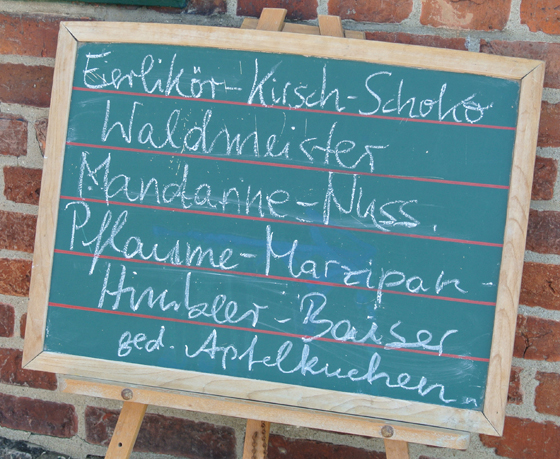 Eierlikör-Kirsch-Schoko
Waldmeister
Mandarine-Nuss.
Pflaume-Marzipan-
Himbeer-Baiser
ged. Apfelkuchen